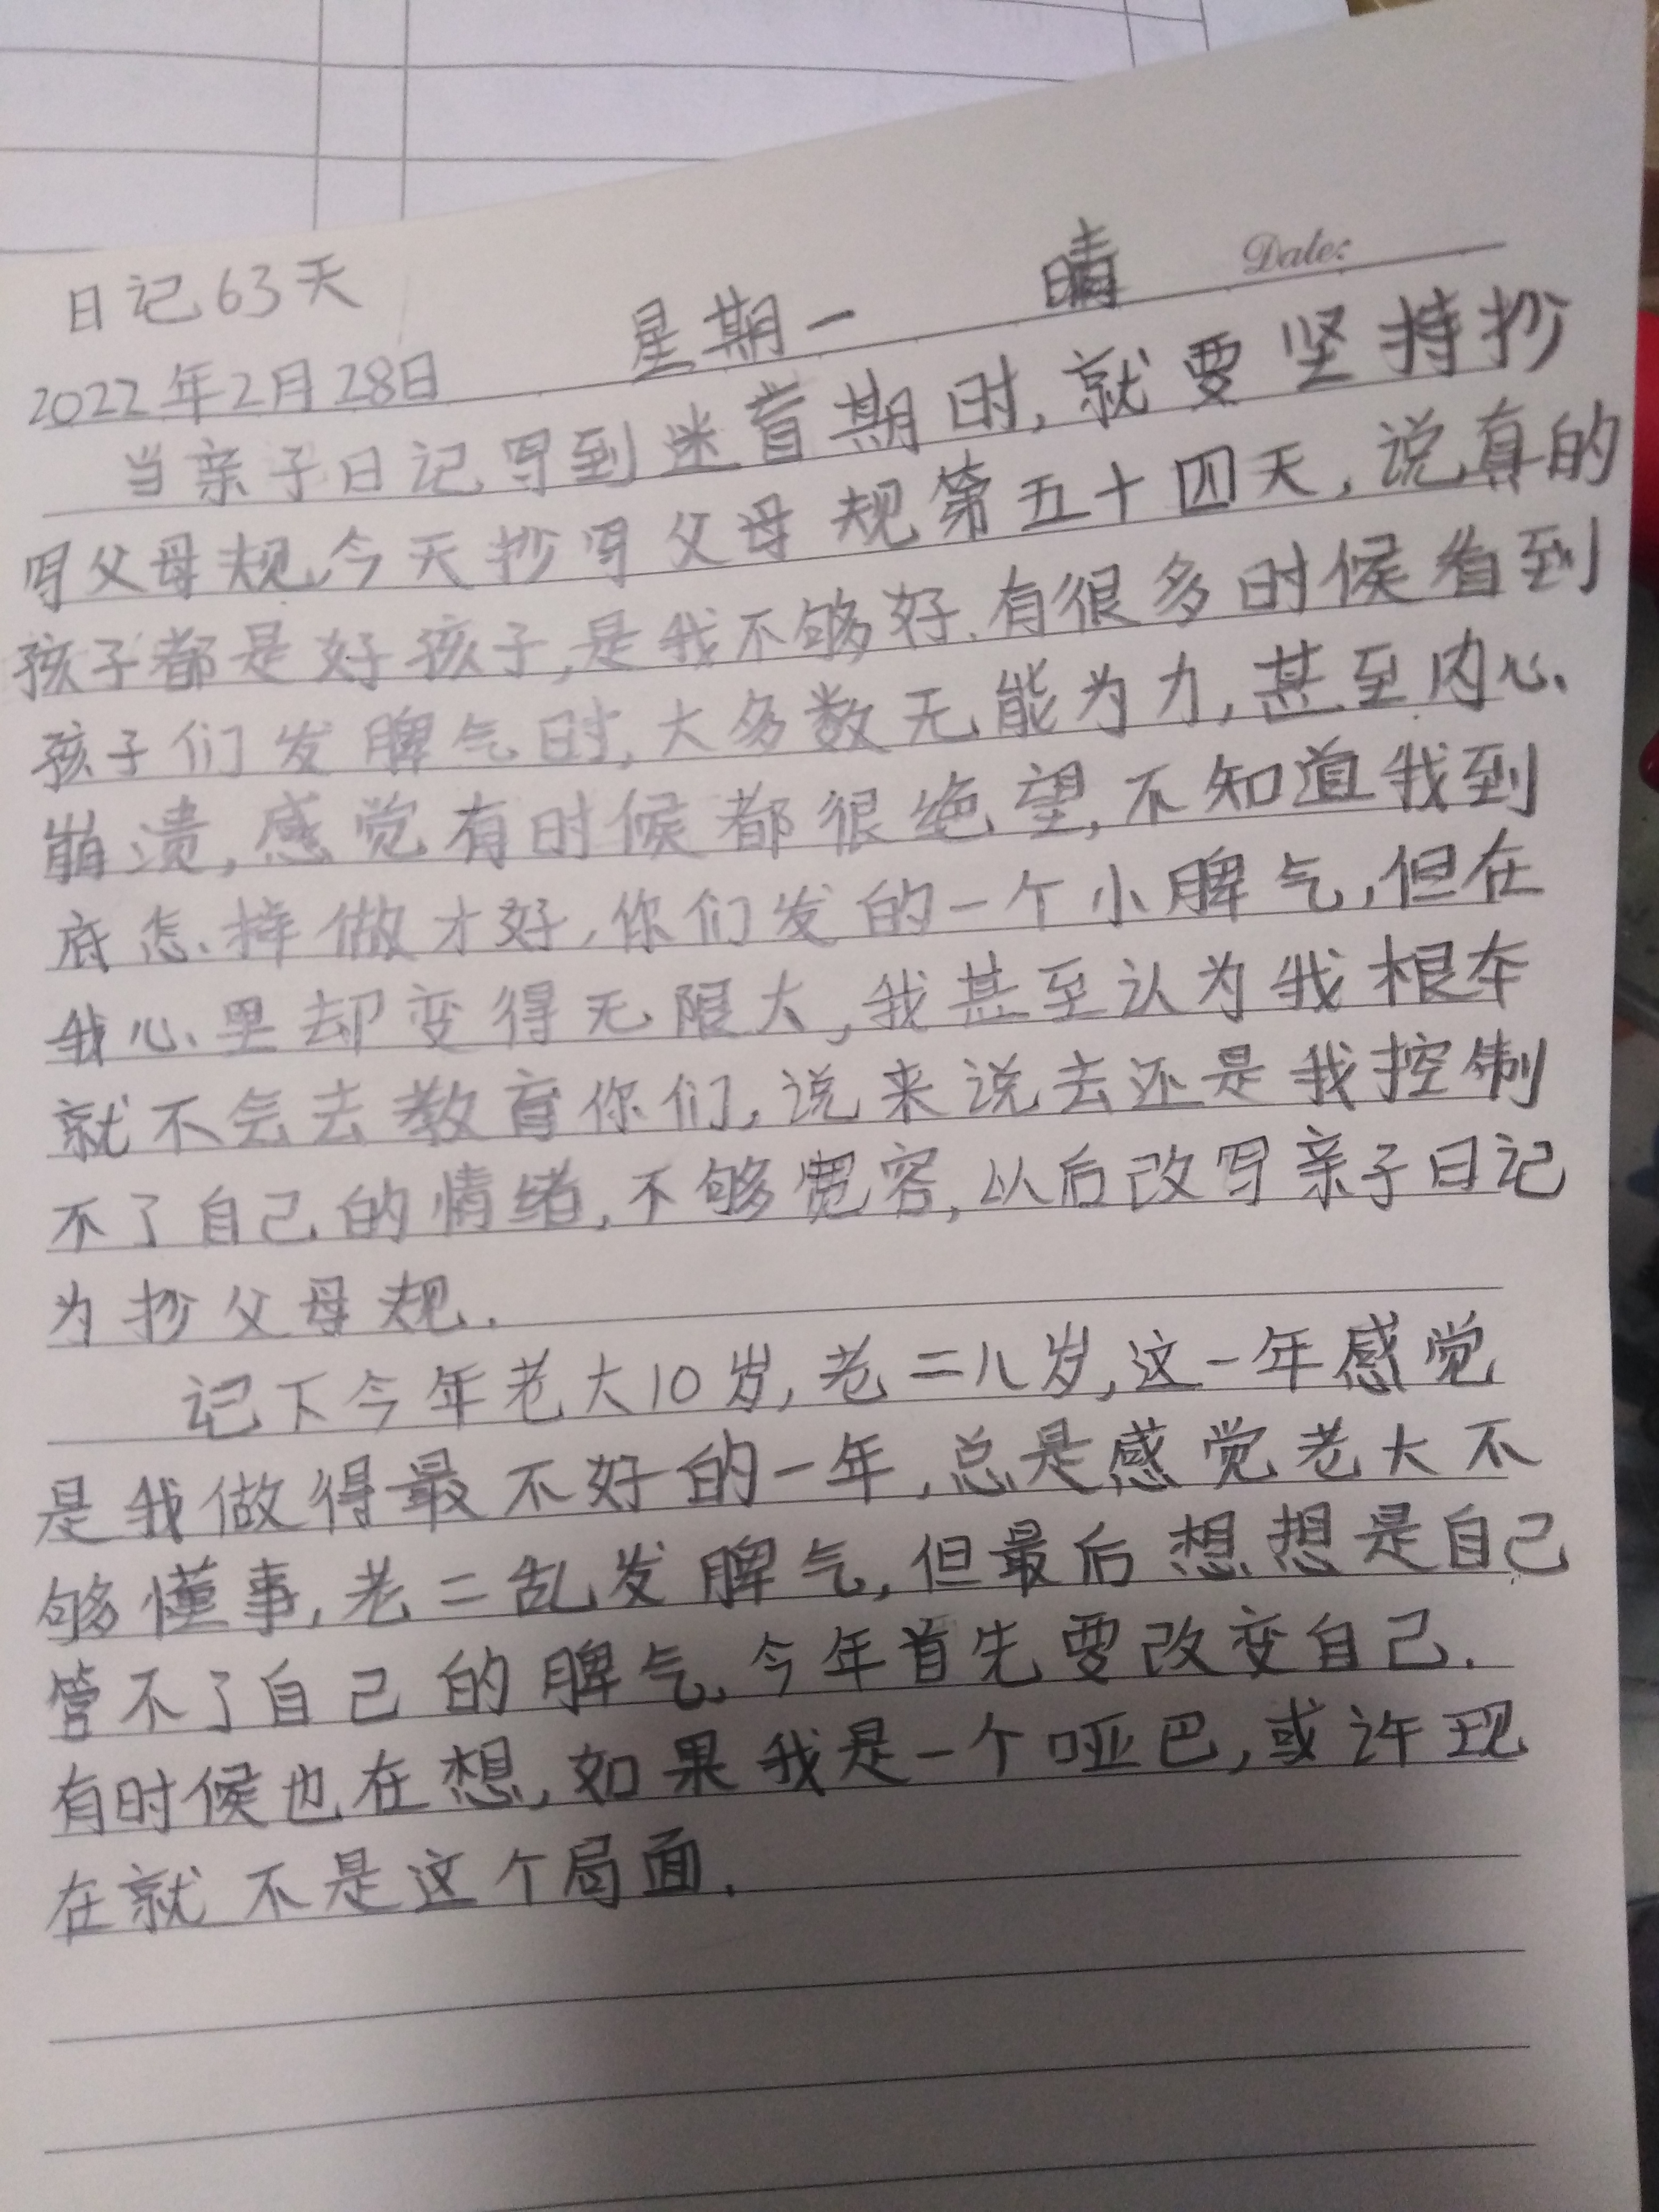 日记63天
Date:
2022年2月28日 星期一 晴
当亲子日记写到迷盲期时,就要坚持抄
写父母规,今天抄写父母规第五十四天,说真的
孩子都是好孩子,是我不够好.有很多时候看到
孩子们发脾气时,大多数无能为力,甚至内心
崩溃,感觉有时候都很绝望,不知道我到
底怎样做才好,你们发的一个小脾气,但在
我心里却变得无限大,我甚至认为我根本
就不会去教育你们,说来说去还是我控制
不了自己的情绪,不够宽容,以后改写亲子日记
为抄父母规.
记下今年老大10岁,老二八岁,这一年感觉
是我做得最不好的一年,总是感觉老大不
够懂事,老二乱发脾气,但最后想想是自己
管不了自己的脾气,今年首先要改变自己.
有时候也在想,如果我是一个哑巴,或许现
在就不是这个局面.